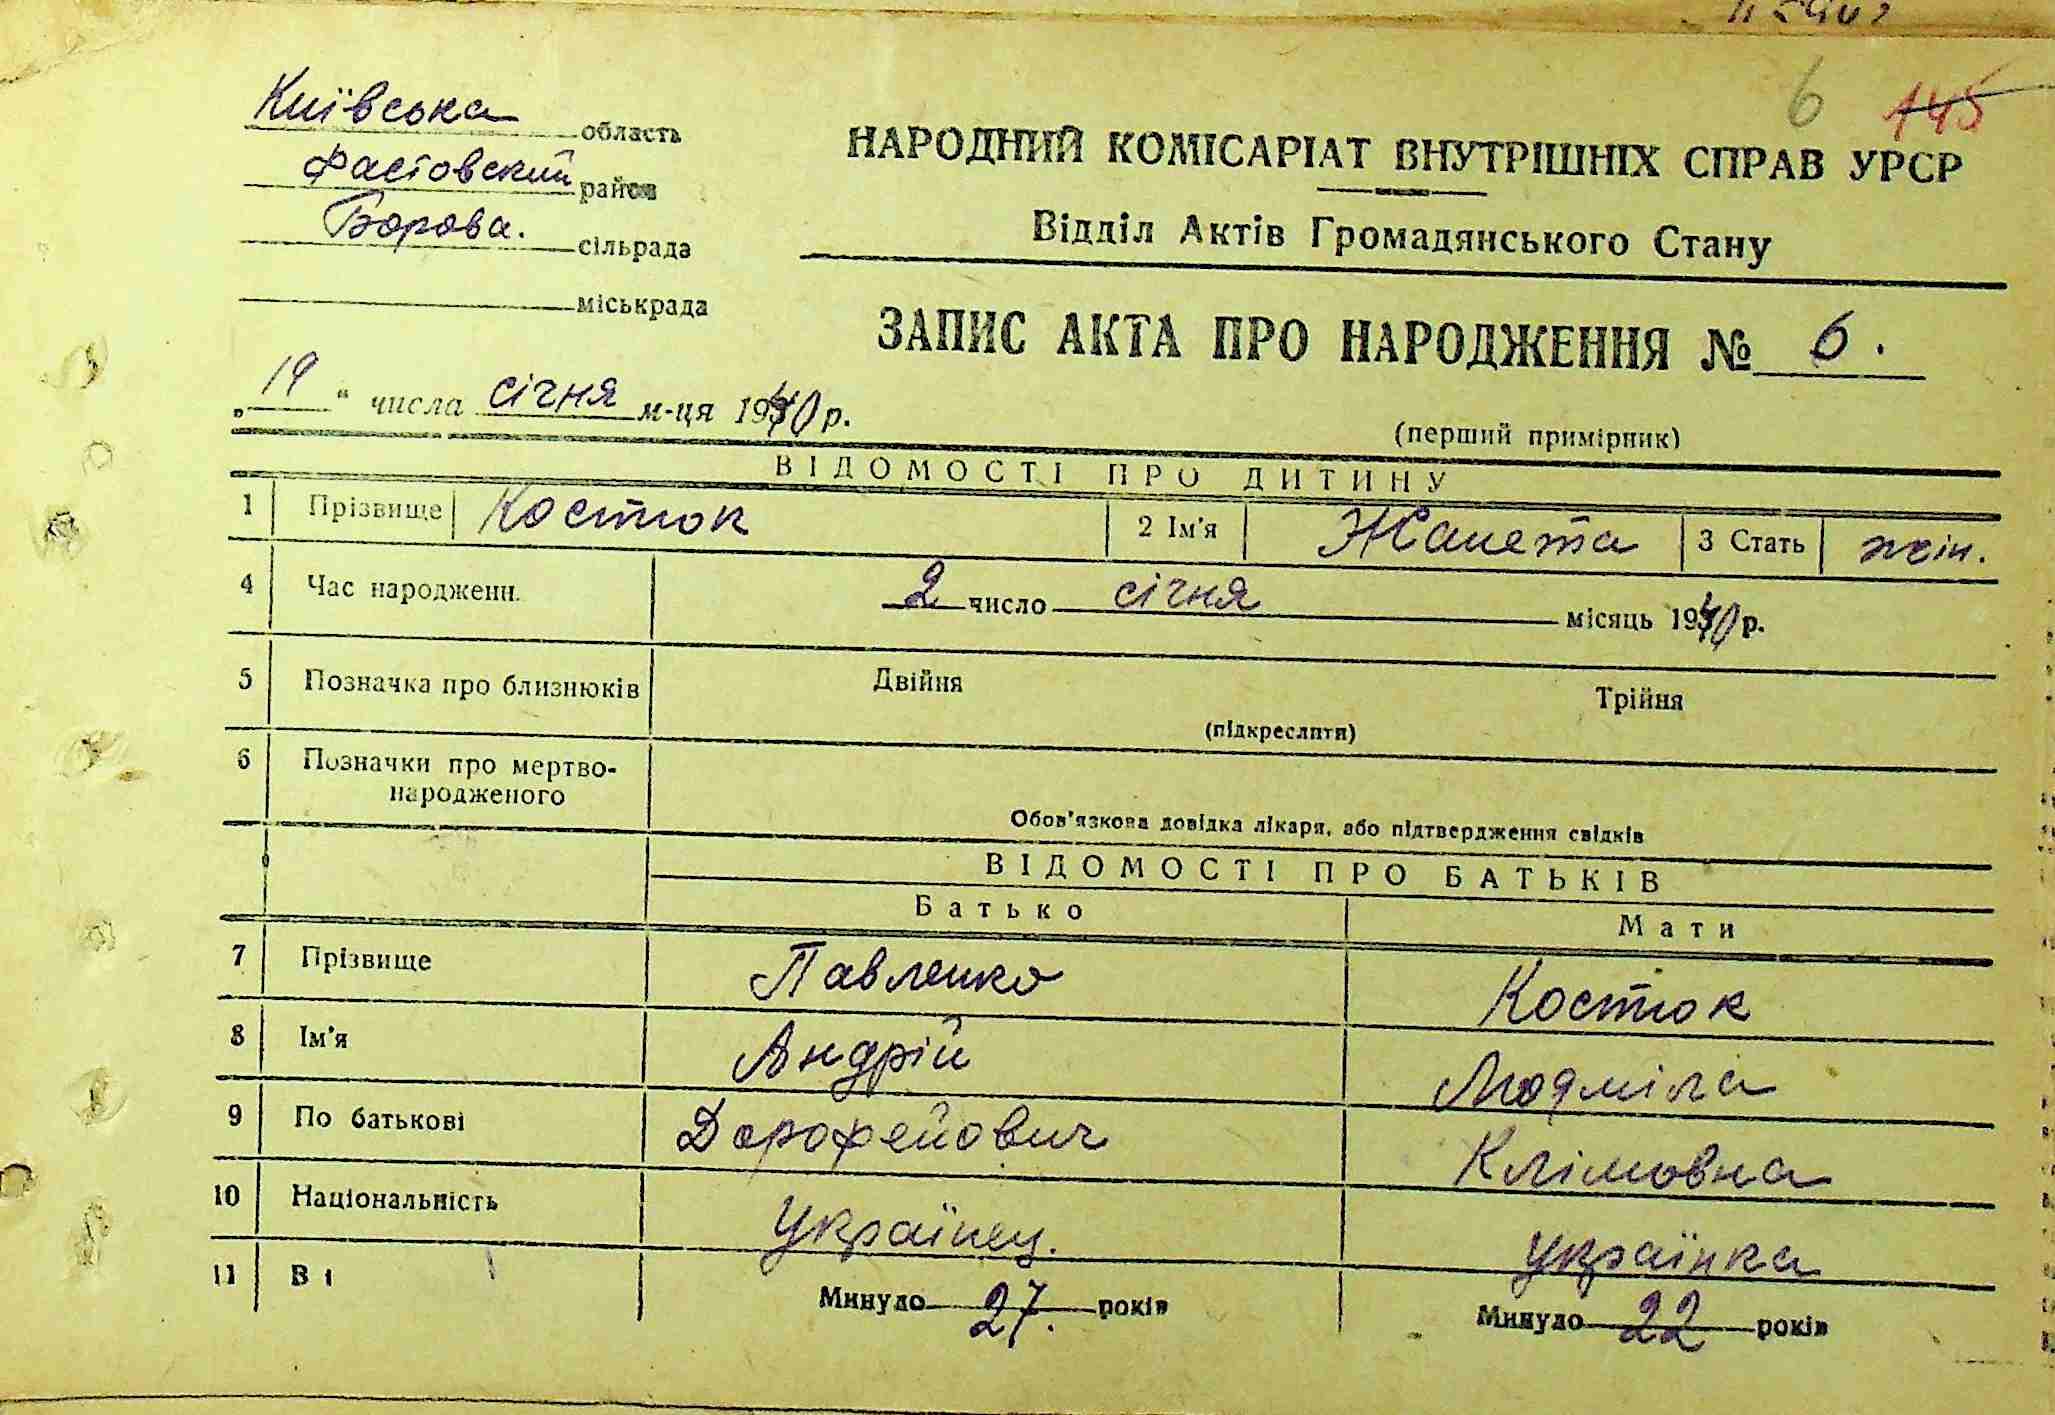 6 145
Київська область
Фастовский район
Борова. сільрада
міськрада
НАРОДНИЙ КОМІСАРІАТ ВНУТРІШНІХ СПРАВ УРСР
Відділ Актів Громадянського Стану
ЗАПИС АКТА ПРО НАРОДЖЕННЯ № 6.
„19“ числа січня м-ця 1940 р.
(перший примірник)
ВІДОМОСТІ ПРО ДИТИНУ
1 Прізвище Костюк 2 Ім'я Жанета 3 Стать жін.
4 Час народженн. 2 число січня місяць 1940 р.
5 Позначка про близнюків Двійня Трійня
(підкреслити)
6 Позначки про мертво-
народженого
Обов'язкова довідка лікаря, або підтвердження свідків
ВІДОМОСТІ ПРО БАТЬКІВ
Батько Мати
7 Прізвище Павленко Костюк
8 Ім'я Андрій Людміла
9 По батькові Дорофейович Клімовна
10 Національність Українец. Українка
11 Ві Минуло 27. років Минуло 22 років